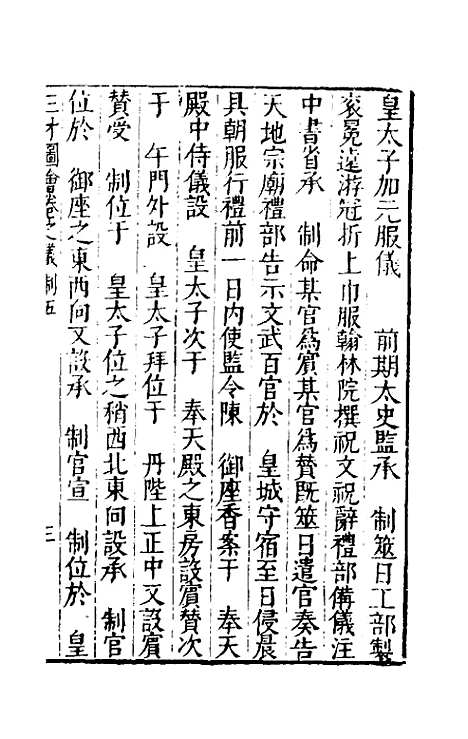 皇太子加元服儀　前期太史監承　制筮日工部製
袞冕遠游冠折上巾服翰林院撰祝文祝辭禮部備儀注
中書省承　制命某官為賓某官為贊既筮日遣官奏告
天地宗廟禮部告示文武百官於　皇城守宿至日侵晨
具朝服行禮前一日内使監令陳　御座香案于　奉天
殿中侍儀設　皇太子次于　奉天殿之東房設賓贊次
于　午門外設　皇太子拜位于　丹陛上正中又設賓
贊受　制位于　皇太子位之稍西北東向設承　制官
位於　御座之東西向又設承　制官宣　制位於　皇
三才圖會卷之儀制五　三